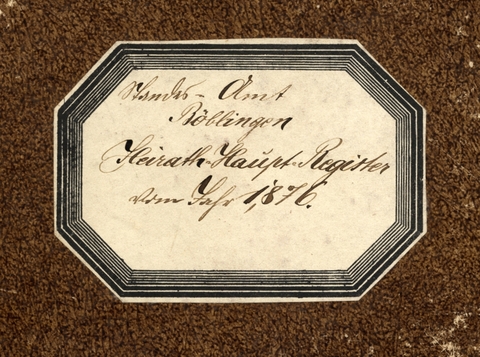 Standes-Amt
Böblingen
Heirath-Haupt-Register
vom Jahr 1876.